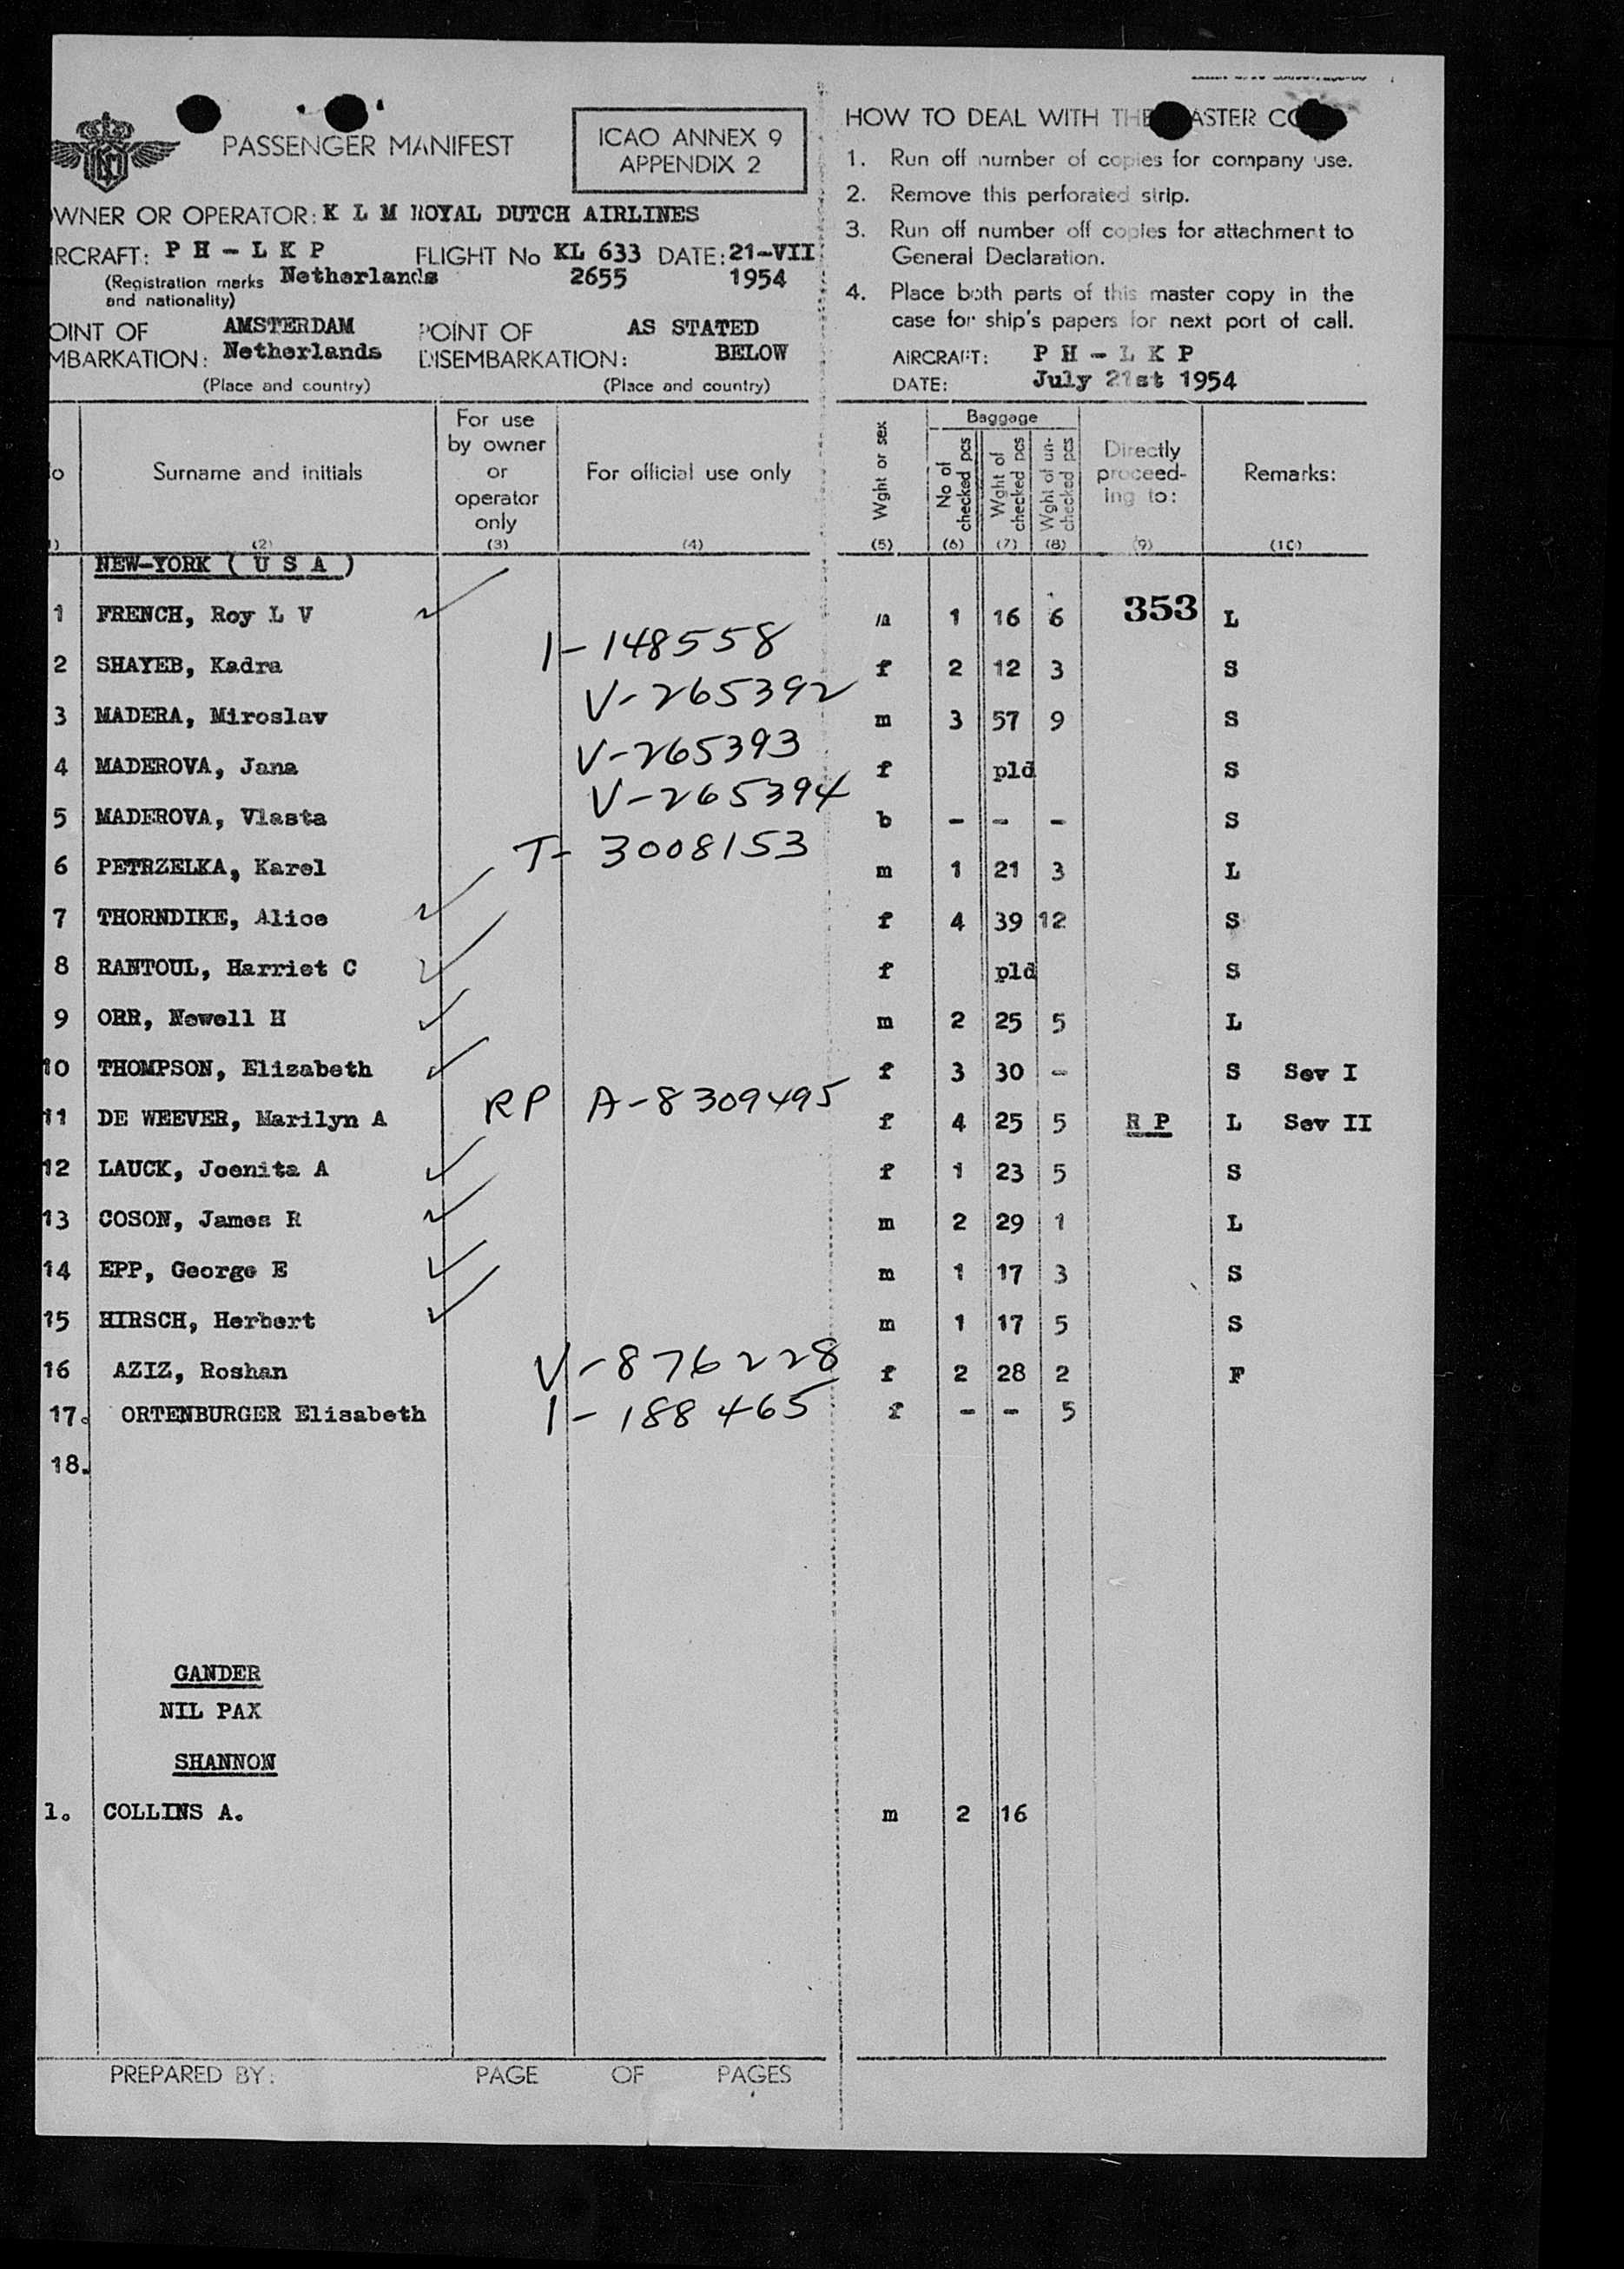 PASSENGER MANIFEST
ICAO ANNEX 9
APPENDIX 2
WNER OR OPERATOR: K L M ROYAL DUTCH AIRLINES
IRCRAFT: P H - L K P FLIGHT No KL 633 DATE: 21-VII
(Registration marks Netherlands 2655 1954
and nationality)
OINT OF AMSTERDAM POINT OF AS STATED
MBARKATION: Netherlands DISEMBARKATION: BELOW
(Place and country) (Place and country)
HOW TO DEAL WITH THE ASTER CO
1. Run off number of copies for company use.
2. Remove this perforated strip.
3. Run off number off copies for attachment to
General Declaration.
4. Place both parts of this master copy in the
case for ship's papers for next port of call.
AIRCRAFT: P H - L K P
DATE: July 21st 1954
o Surname and initials For use by owner or operator only For official use only Wght or sex Baggage No of checked pcs Wght of checked pcs Wght of un-checked pcs Directly proceed-ing to: Remarks:
) (2) (3) (4) (5) (6) (7) (8) (9) (10)
NEW-YORK ( U S A )
1 FRENCH, Roy L V m 1 16 6 353 L
2 SHAYEB, Kadra 1-148558 f 2 12 3 S
3 MADERA, Miroslav V-265392 m 3 57 9 S
4 MADEROVA, Jana V-265393 f pld S
5 MADEROVA, Vlasta V-265394 b - - - S
6 PETRZELKA, Karel T-3008153 m 1 21 3 L
7 THORNDIKE, Alice f 4 39 12 S
8 RANTOUL, Harriet C f pld S
9 ORR, Newell H m 2 25 5 L
10 THOMPSON, Elizabeth f 3 30 - S Sev I
11 DE WEEVER, Marilyn A RP A-8309495 f 4 25 5 R P L Sev II
12 LAUCK, Joenita A f 1 23 5 S
13 COSON, James R m 2 29 1 L
14 EPP, George E m 1 17 3 S
15 HIRSCH, Herbert m 1 17 5 S
16 AZIZ, Roshan V-876228 f 2 28 2 F
17. ORTENBURGER Elisabeth 1-188465 f - - 5
18.
GANDER
NIL PAX
SHANNON
1. COLLINS A. m 2 16
PREPARED BY: PAGE OF PAGES